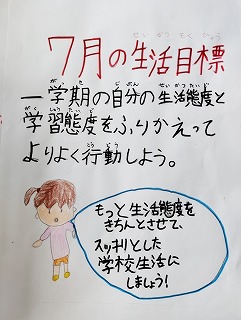 7月の生活目標
一学期の自分の生活態度と
学習態度をふりかえって
よりよく行動しよう。
もっと生活態度を
きちんとさせて、
スッキリとした
学校生活に
しましょう!